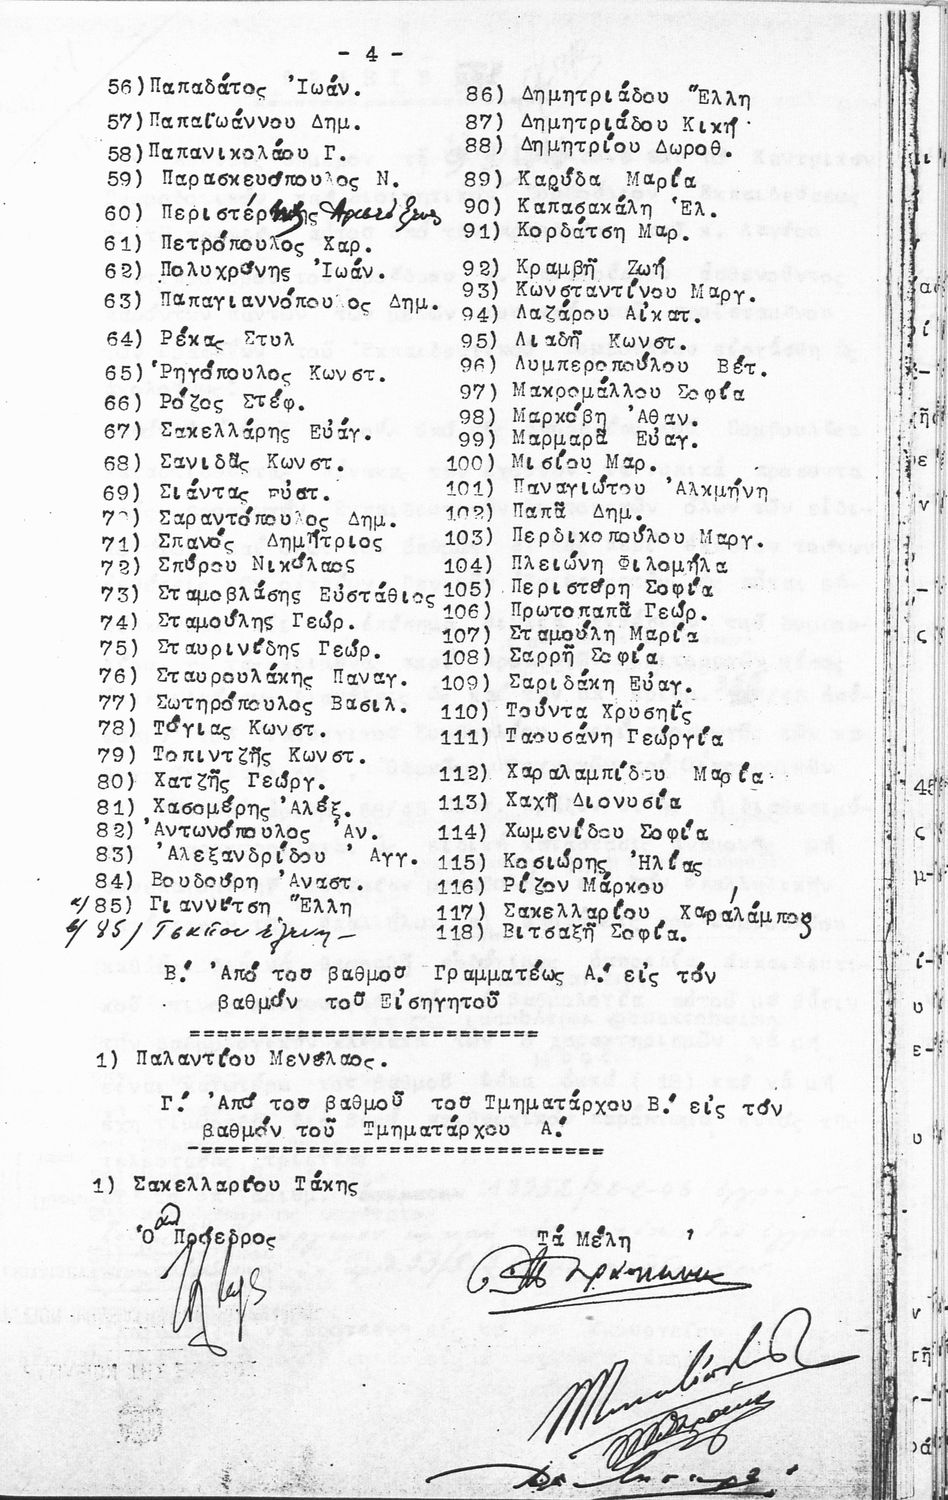 - 4 -
56) Παπαδάτος Ἰωάν.
57) Παπαϊωάννου Δημ.
58) Παπανικολάου Γ.
59) Παρασκευόπουλος Ν.
60) Περιστέρης
61) Πετρόπουλος Χαρ.
62) Πολυχρόνης Ἰωάν.
63) Παπαγιαννόπουλος Δημ.
64) Ρέκας Στυλ
65) Ῥηγόπουλος Κωνστ.
66) Ρόζος Στέφ.
67) Σακελλάρης Εὐάγ.
68) Σανιδᾶς Κωνστ.
69) Σιάντας Εὐστ.
70) Σαραντόπουλος Δημ.
71) Σπανός Δημήτριος
72) Σπύρου Νικόλαος
73) Σταμοβλάσης Εὐστάθιος
74) Σταμούλης Γεώρ.
75) Σταυρινίδης Γεώρ.
76) Σταυρουλάκης Παναγ.
77) Σωτηρόπουλος Βασιλ.
78) Τόγιας Κωνστ.
79) Τοπιντζῆς Κωνστ.
80) Χατζῆς Γεώργ.
81) Χασομέρης Ἀλέξ.
82) Ἀντωνόπουλος Ἀν.
83) Ἀλεξανδρίδου Ἀγγ.
84) Βουδούρη Ἀναστ.
85) Γιαννίτση Ἕλλη
85)
86) Δημητριάδου Ἕλλη
87) Δημητριάδου Κική
88) Δημητρίου Δωροθ.
89) Καρύδα Μαρία
90) Καπασακάλη Ἑλ.
91) Κορδάτση Μαρ.
92) Κραμβῆ Ζωή
93) Κωνσταντίνου Μαργ.
94) Λαζάρου Αἰκατ.
95) Λιαδῆ Κωνστ.
96) Λυμπεροπούλου Βέτ.
97) Μακρομάλλου Σοφία
98) Μαρκόβη Ἀθαν.
99) Μαρμαρᾶ Εὐαγ.
100) Μισίου Μαρ.
101) Παναγιώτου Ἀλκμήνη
102) Παπᾶ Δημ.
103) Περδικοπούλου Μαργ.
104) Πλειώνη Φιλομήλα
105) Περιστέρη Σοφία
106) Πρωτοπαπᾶ Γεώρ.
107) Σταμούλη Μαρία
108) Σαρρῆ Σοφία
109) Σαριδάκη Εὐαγ.
110) Τούντα Χρυσηίς
111) Ταουσάνη Γεωργία
112) Χαραλαμπίδου Μαρία
113) Χαχῆ Διονυσία
114) Χωμενίδου Σοφία
115) Κοσιώρης Ἠλίας
116) Ρίζον Μάρκου
117) Σακελλαρίου Χαράλάμπους
118) Βιτσαξῆ Σοφία.
Β.΄ Ἀπό τοῦ βαθμοῦ Γραμματέως Α.΄ εἰς τόν
βαθμόν τοῦ Εἰσηγητοῦ
===========================
1) Παλαντίου Μενέλαος.
Γ.΄ Ἀπό τοῦ βαθμοῦ τοῦ Τμηματάρχου Β.΄ εἰς τόν
βαθμόν τοῦ Τμηματάρχου Α.΄
================================
1) Σακελλαρίου Τάκης
Ὁ Πρόεδρος
Τά Μέλη